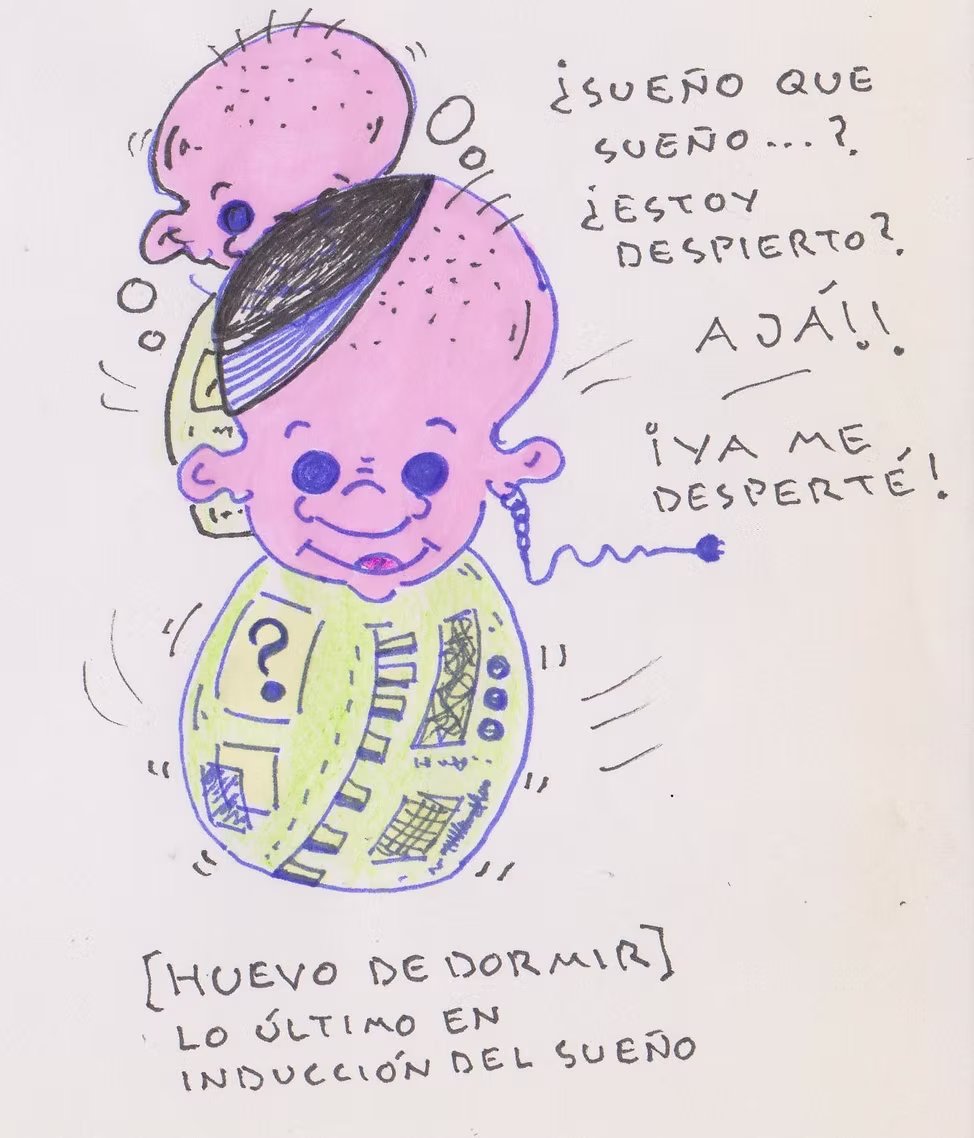 ¿SUEÑO QUE
SUEÑO...?
¿ESTOY
DESPIERTO?
AJÁ!!
¡YA ME
DESPERTÉ!
?
[HUEVO DE DORMIR]
LO ÚLTIMO EN
INDUCCIÓN DEL SUEÑO